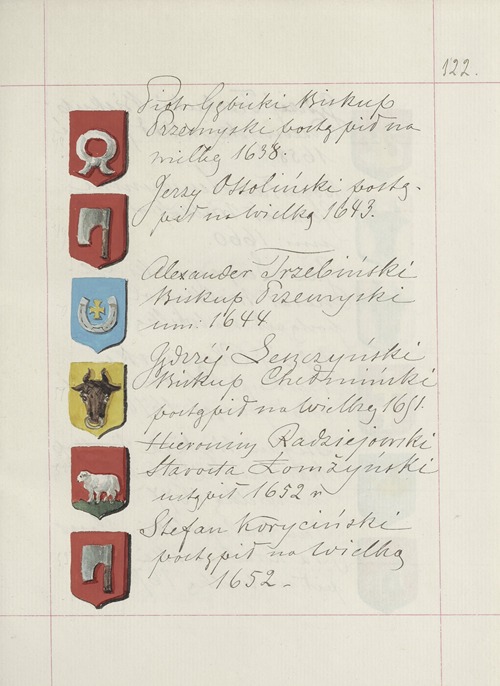 122.
Piotr Gębicki Biskup
Przemyski postąpił na
wielką 1638.
Jerzy Ossoliński postą-
pił na wielką 1643.
Alexander Trzebiński
Biskup Przemyski
um: 1644
Jędrzéj Leszczyński
Biskup Chełmiński
postąpił na wielką 1651.
Hieronim Radziejowski
Starosta Łomżyński
ustąpił 1652 r
Stefan Koryciński
postąpił na wielką
1652 -